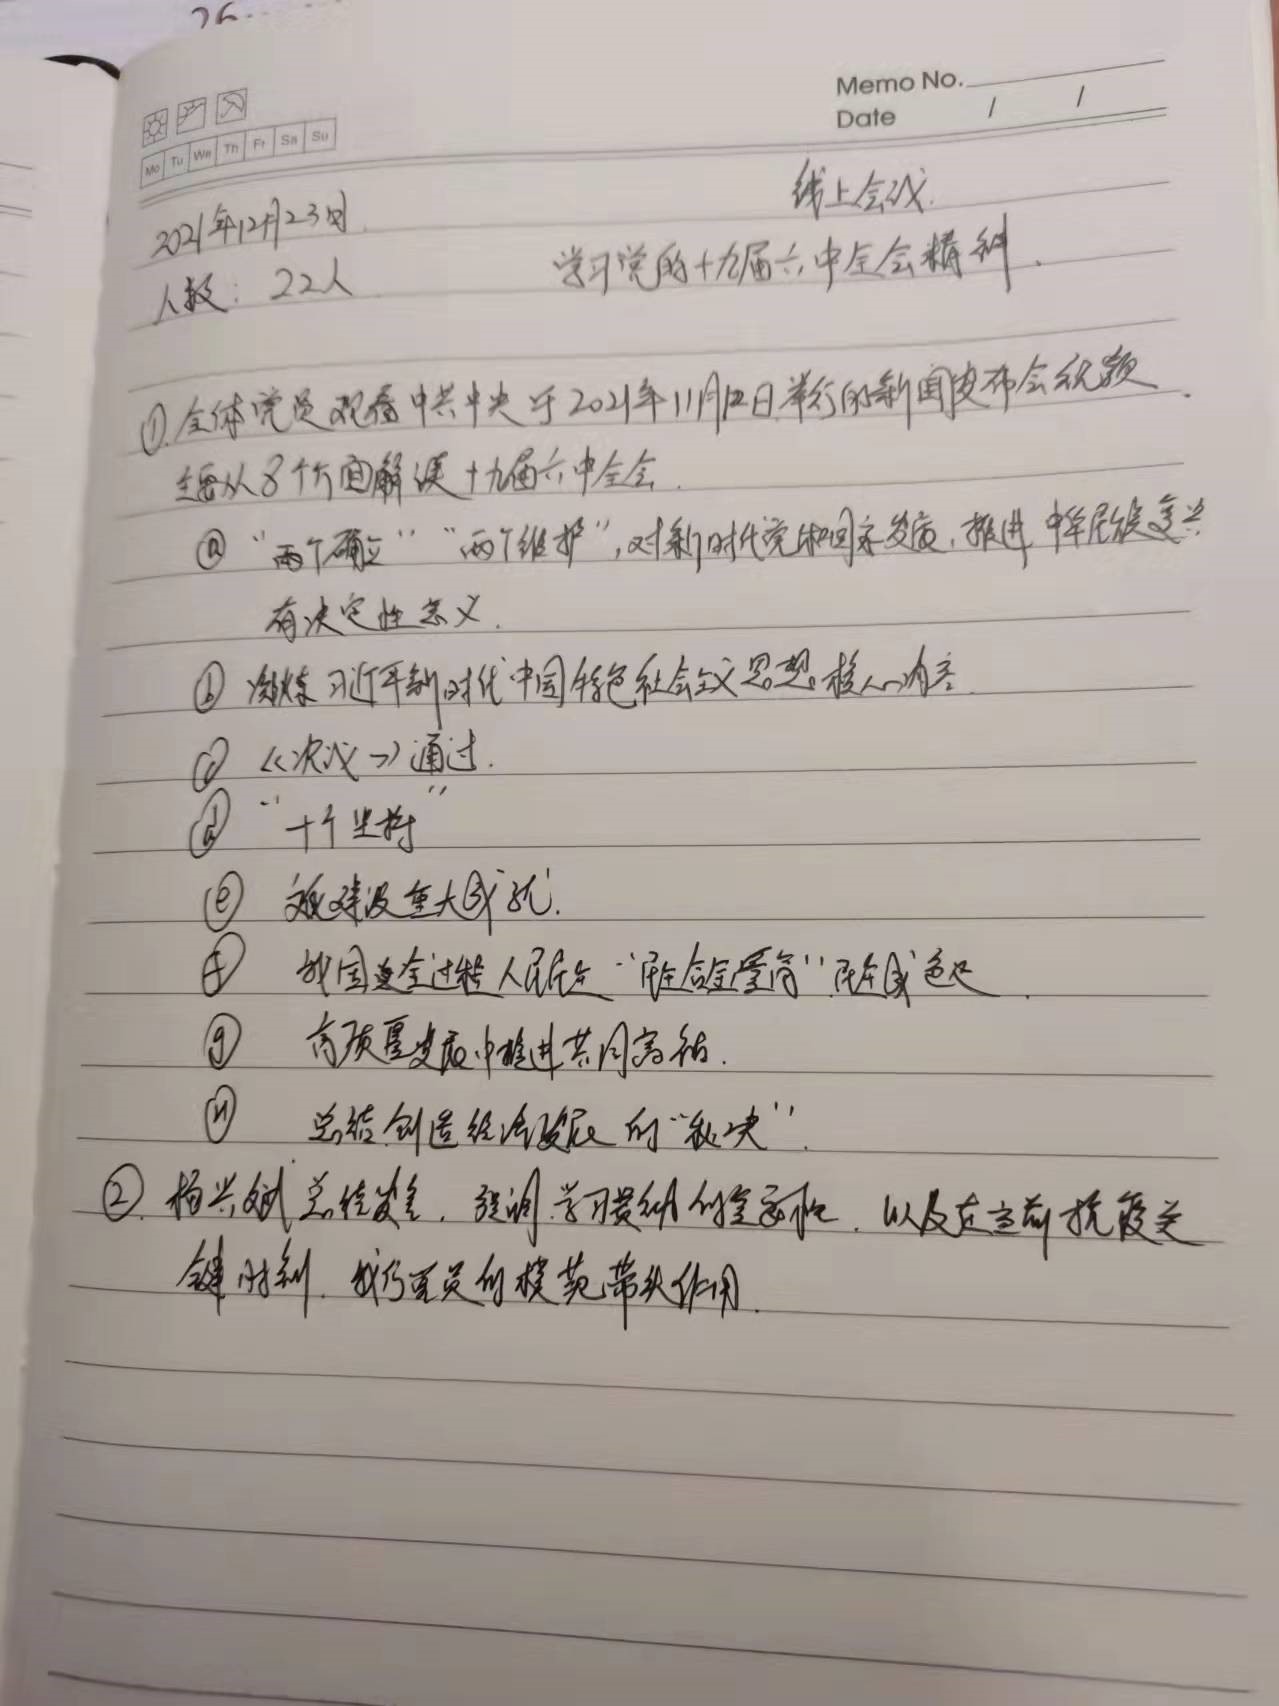 Memo No.
Date / /
Mo Tu We Th Fr Sa Su
2021年12月23日 线上会议.
人数: 22人 学习党的十九届六中全会精神.
①.全体党员观看中共中央于2021年11月12日举行的新闻发布会视频.
主要从8个方面解读十九届六中全会.
ⓐ "两个确立" "两个维护", 对新时代党和国家发展, 推进中华民族复兴
有决定性意义.
ⓑ 凝炼习近平新时代中国特色社会主义思想核心内容.
ⓒ 《决议》通过.
ⓓ "十个坚持"
ⓔ 建设重大成就.
ⓕ 我国全过程人民民主 "民主 " 民主成色足.
ⓖ 高质量发展中推进共同富裕.
ⓗ 总结创造经济发展的"秘诀".
②. 杨兴斌总结发言, 强调学习贯彻的重要性, 以及在当前抗疫关
键时刻, 我们党员的模范带头作用.